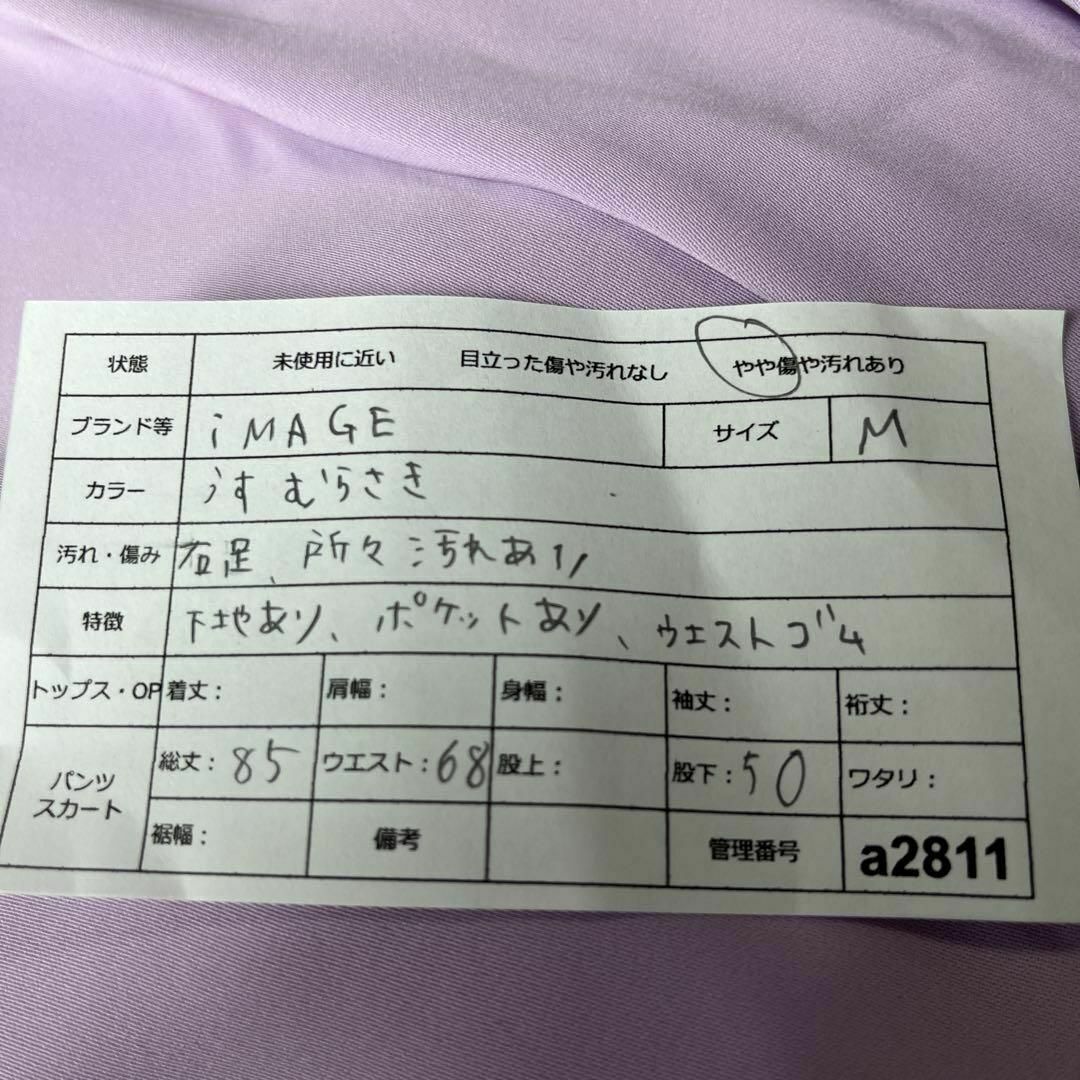 状態 未使用に近い 目立った傷や汚れなし やや傷や汚れあり
ブランド等 iMAGE サイズ M
カラー うすむらさき
汚れ・傷み 右足、所々汚れあり
特徴 下地あり、ポケットあり、ウエストゴム
トップス・OP 着丈： 肩幅： 身幅： 袖丈： 裄丈：
パンツ
スカート
総丈：85 ウエスト：68 股上： 股下：50 ワタリ：
裾幅： 備考 管理番号 a2811